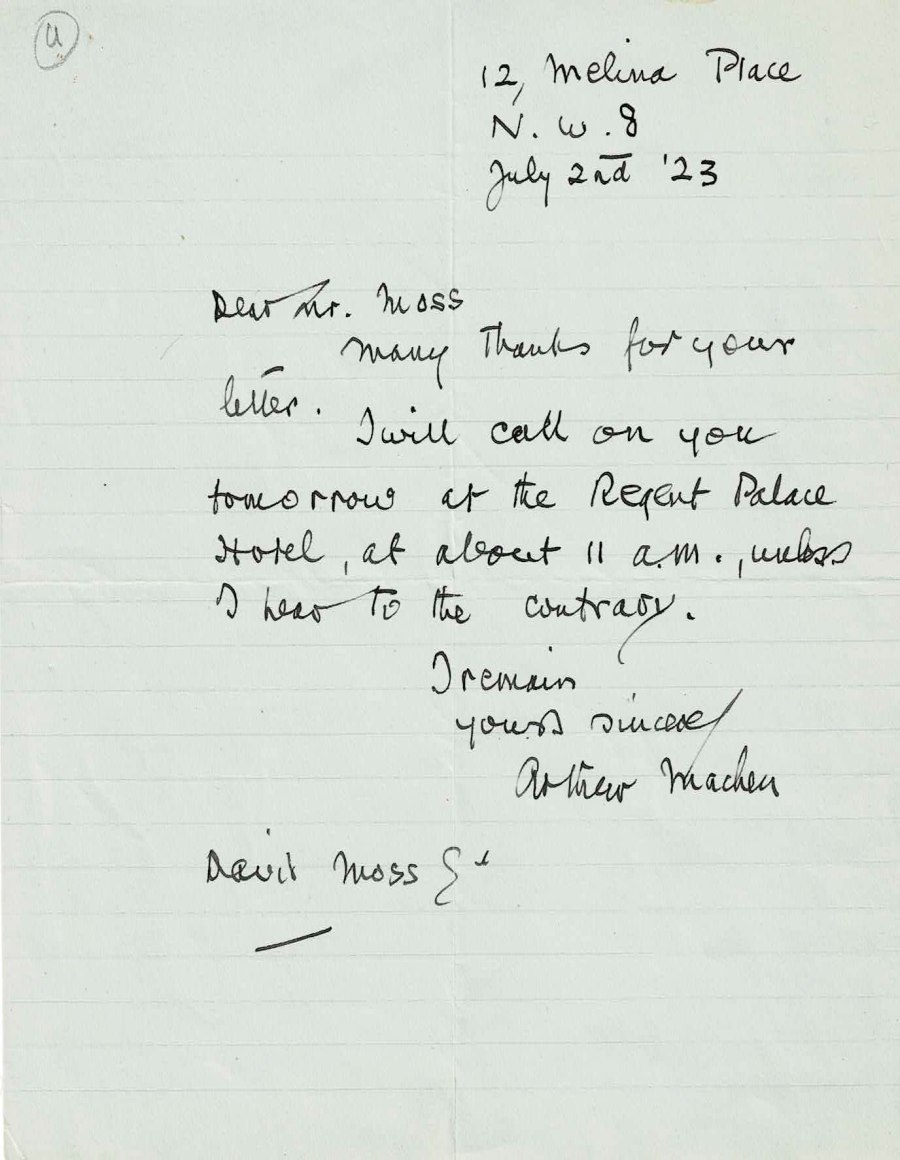 12, Melina Place
N. W. 8
July 2nd '23
Dear Mr. Moss
Many thanks for your
letter.
I will call on you
tomorrow at the Regent Palace
Hotel, at about 11 a.m., unless
I hear to the contrary.
I remain
yours sincerely
Arthur Machen
David Moss Esq